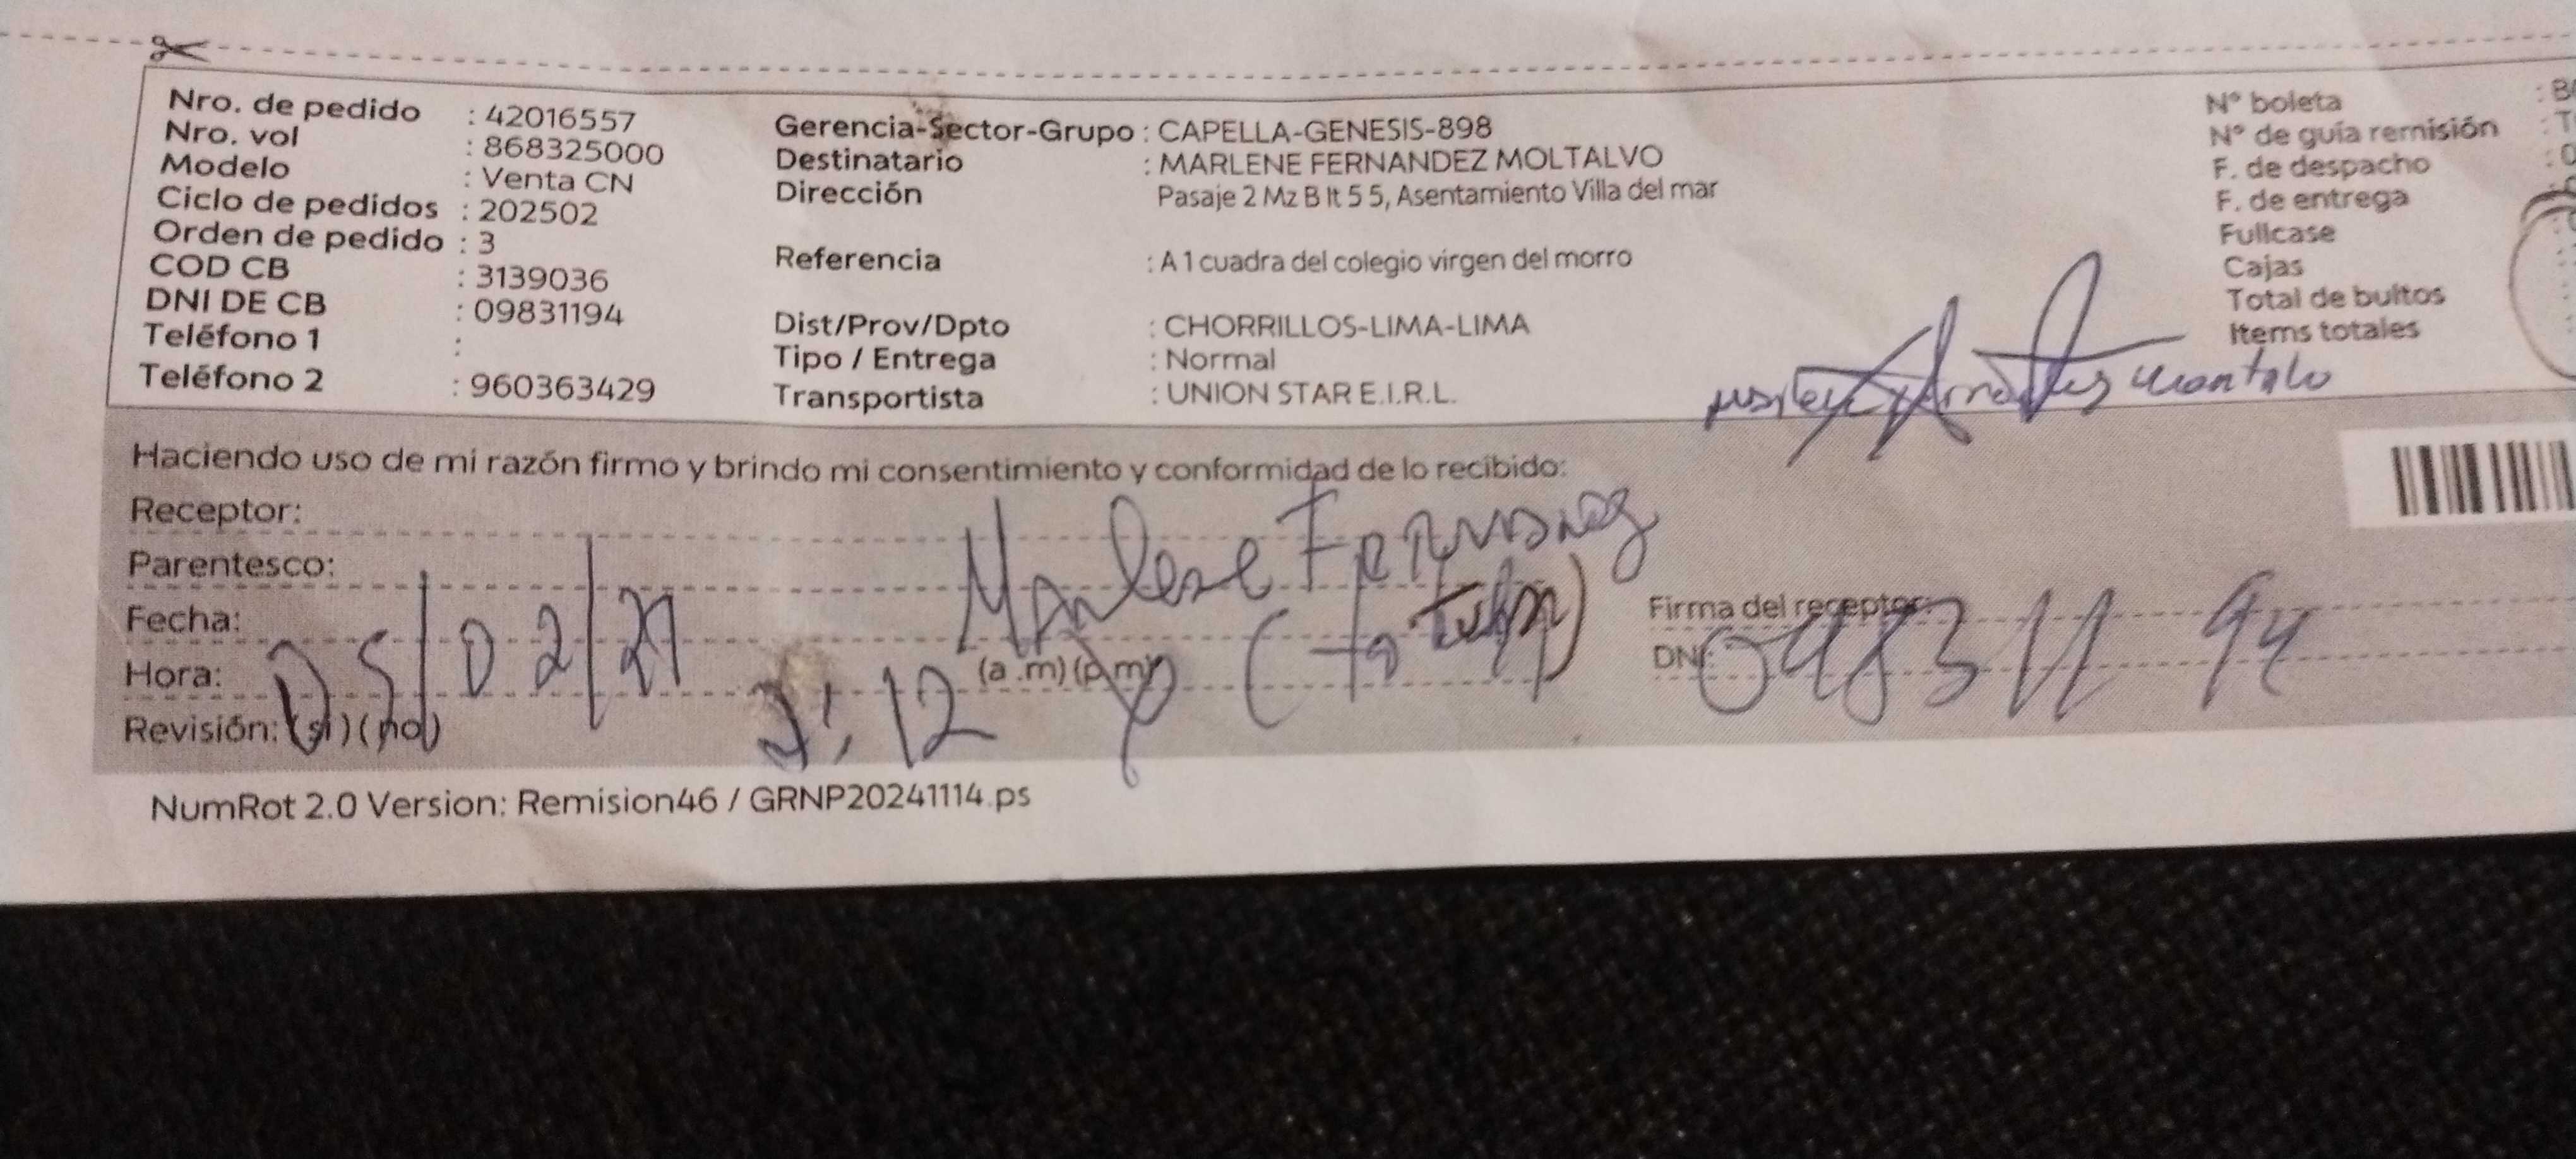 Nro. de pedido : 42016557
Nro. vol : 868325000
Modelo : Venta CN
Ciclo de pedidos : 202502
Orden de pedido : 3
COD CB : 3139036
DNI DE CB : 09831194
Teléfono 1 :
Teléfono 2 : 960363429
Gerencia-Sector-Grupo : CAPELLA-GENESIS-898
Destinatario : MARLENE FERNANDEZ MOLTALVO
Dirección Pasaje 2 Mz B lt 5 5, Asentamiento Villa del mar
Referencia : A 1 cuadra del colegio virgen del morro
Dist/Prov/Dpto : CHORRILLOS-LIMA-LIMA
Tipo / Entrega : Normal
Transportista : UNION STAR E.I.R.L.
N° boleta
N° de guía remisión
F. de despacho
F. de entrega
Fullcase
Cajas
Total de bultos
Items totales
Haciendo uso de mi razón firmo y brindo mi consentimiento y conformidad de lo recibido:
Receptor:
Marlene Fernandez
Parentesco:
Fecha:
Hora:
(a .m) (p.m)
Revisión: (si) (no)
Firma del receptor:
DNI: 09831194
NumRot 2.0 Version: Remision46 / GRNP20241114.ps